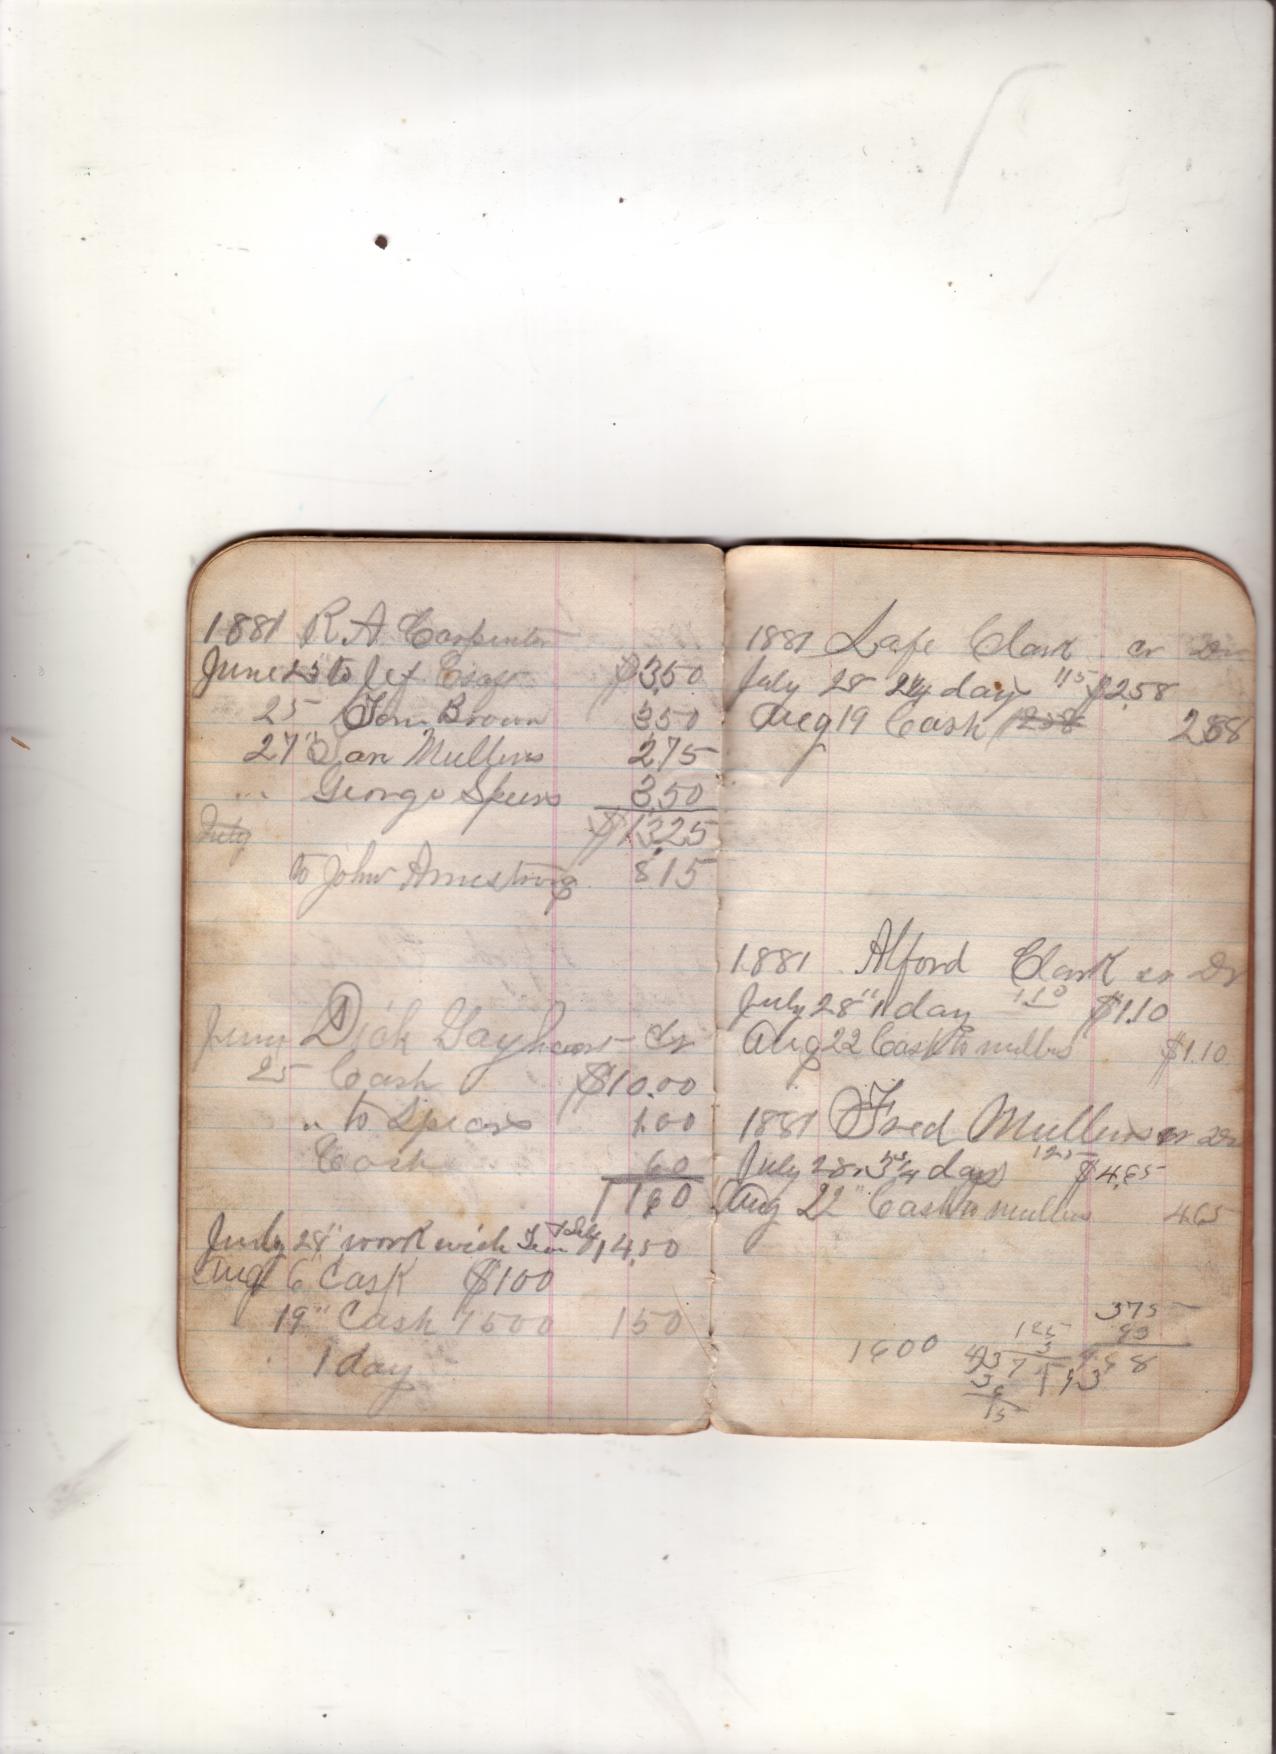 1881 R. A. Carpenter
June 25" to Jef $3.50
25 Tom Brown 3.50
27" Dan Mullins 2.75
" George Spears 3.50
July $13.25
to John Armstrong 8.15
June Dick Gayheart Dr
25 Cash $10.00
" to Spears 1.00
Cash 60
1160
July 28" work with Team 14.50
Aug 6" Cash $100
19" Cash 1500 150
1 day
1881 Lafe Clark cr Dr
July 28 2 1/4 days 115 $2.58
Aug 19 Cash 258 258
1881 Alford Clark cr Dr
July 28" 1 day 1.10 $1.10
Aug 22 Cash to mullins $1.10
1881 Fred Mullins cr Dr
July 28" 3 3/4 days 125 $4.65
Aug 22" Cash to mullins 465
375
125 93
1600 3 468
93
15